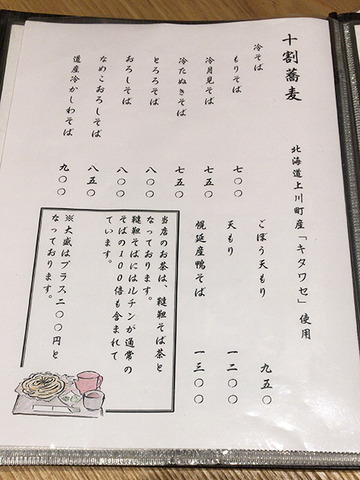 十割蕎麦 北海道上川町産「キタワセ」使用
冷そば
もりそば 七〇〇
冷月見そば 七五〇
冷たぬきそば 七五〇
とろろそば 八〇〇
おろしそば 八〇〇
なめこおろしそば 八五〇
道産冷かしわそば 九〇〇
ごぼう天もり 九五〇
天もり 一二〇〇
幌延産鴨そば 一三〇〇
当店のお茶は、韃靼そば茶と
なっております。
韃靼そばにはルチンが通常の
そばの100倍も含まれて
ています。
※大盛はプラス二〇〇円と
なっております。